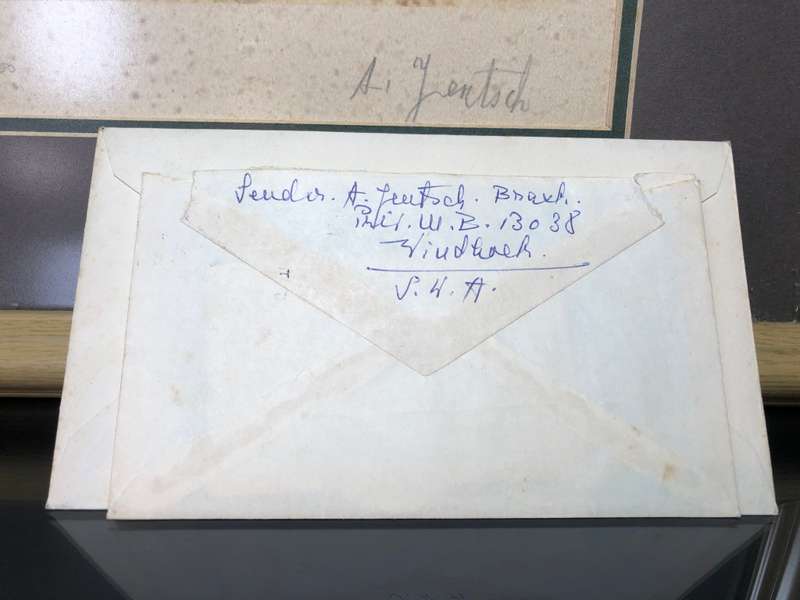 A. Jentsch
Sender. A. Jentsch. Brakw.
Priv. M. B. 13038
Windhoek.
S. W. A.